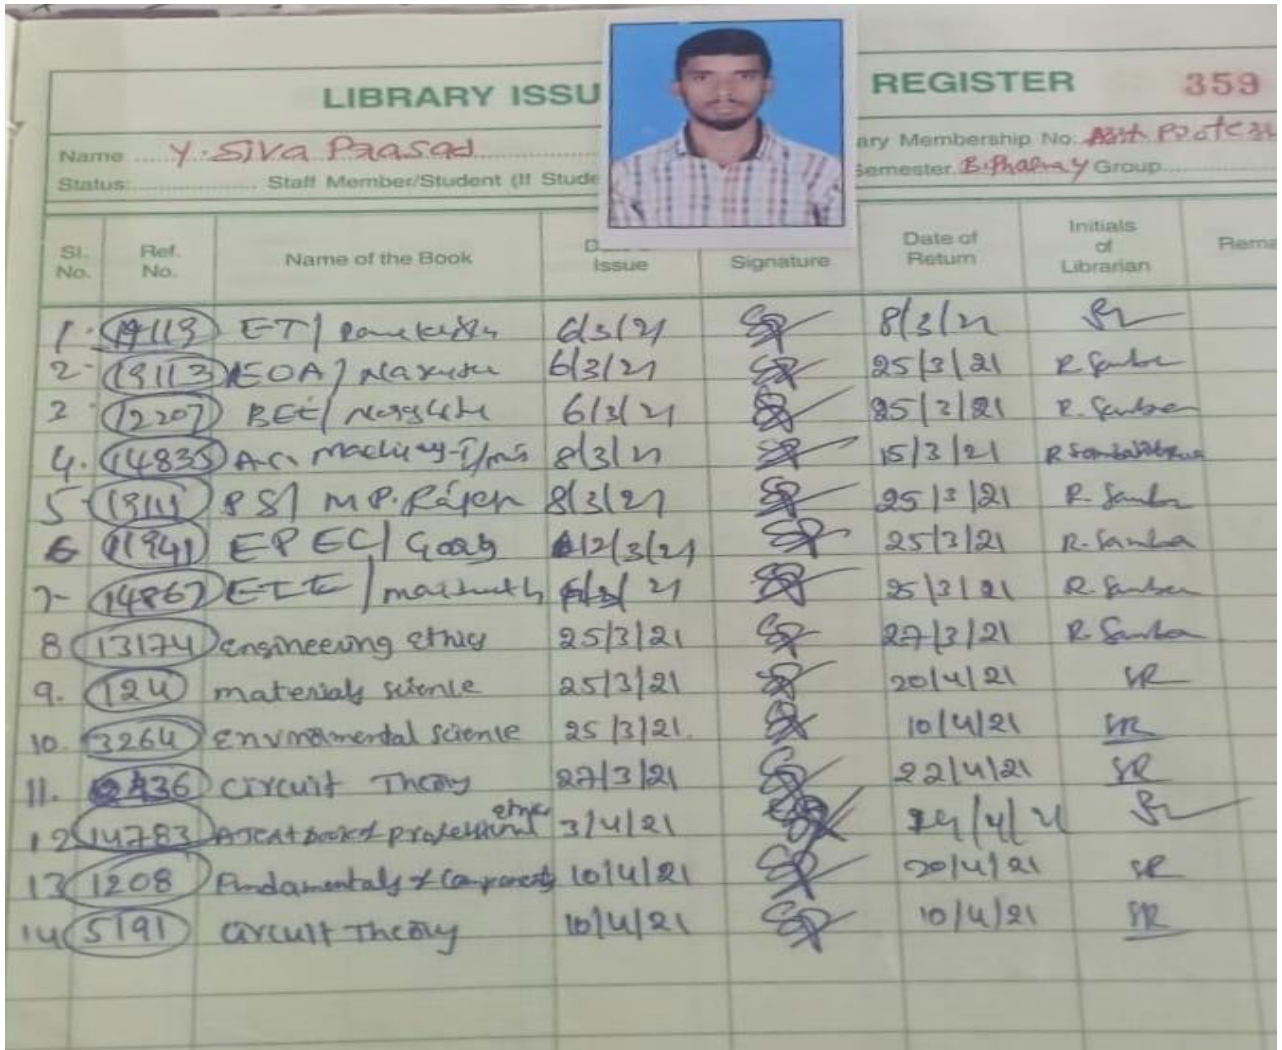 LIBRARY ISSU REGISTER 359
Name Y. Siva Prasad ary Membership No: Asst. Profess
Status: Staff Member/Student (If Stude Semester B.Pharmacy Group
Sl. No. Ref. No. Name of the Book Issue Signature Date of Return Initials of Librarian Rema
1. 19113 ET/ 6/3/21 8/3/21
2. 19113 EOA/ 6/3/21 25/3/21 R. Samba
3 12207 BEE/ 6/3/21 25/3/21 R. Samba
4. 14835 A.C. 8/3/21 15/3/21
5 PS/ M.P. 8/3/21 25/3/21 R. Samba
6 11941 EPEC/ Garg 12/3/21 25/3/21 R. Samba
7- 14867 21 25/3/21 R. Samba
8 13174 engineering ethics 25/3/21 27/3/21 R. Samba
9. 124 materials science 25/3/21 20/4/21 SR
10. 3264 Environmental science 25/3/21. 10/4/21 SR
11. Circuit Theory 27/3/21 22/4/21 SR
12 14783 A Text book of professional ethics 3/4/21
13 1208 Fundamentals of 10/4/21 20/4/21 SR
14 5191 circuit Theory 10/4/21 10/4/21 SR